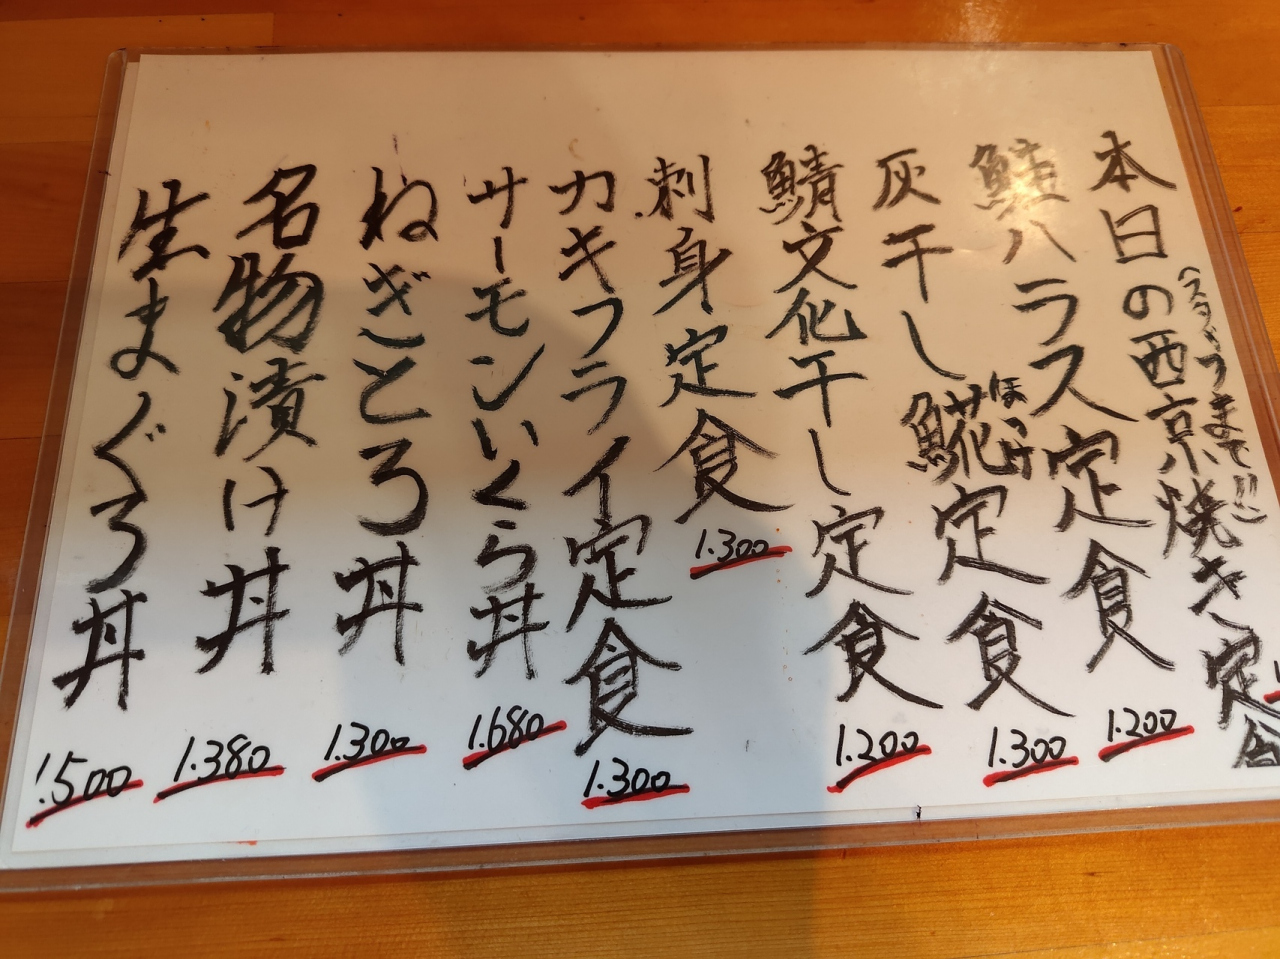 本日の西京焼き定食
(スタッフまで!!)
鮭ハラス定食
1.200
灰干し鯱定食
ほっけ
1.300
鯖文化干し定食
1.200
刺身定食
1.300
カキフライ定食
1.300
サーモンいくら丼
1.680
ねぎとろ丼
1.300
名物漬け丼
1.380
生まぐろ丼
1.500